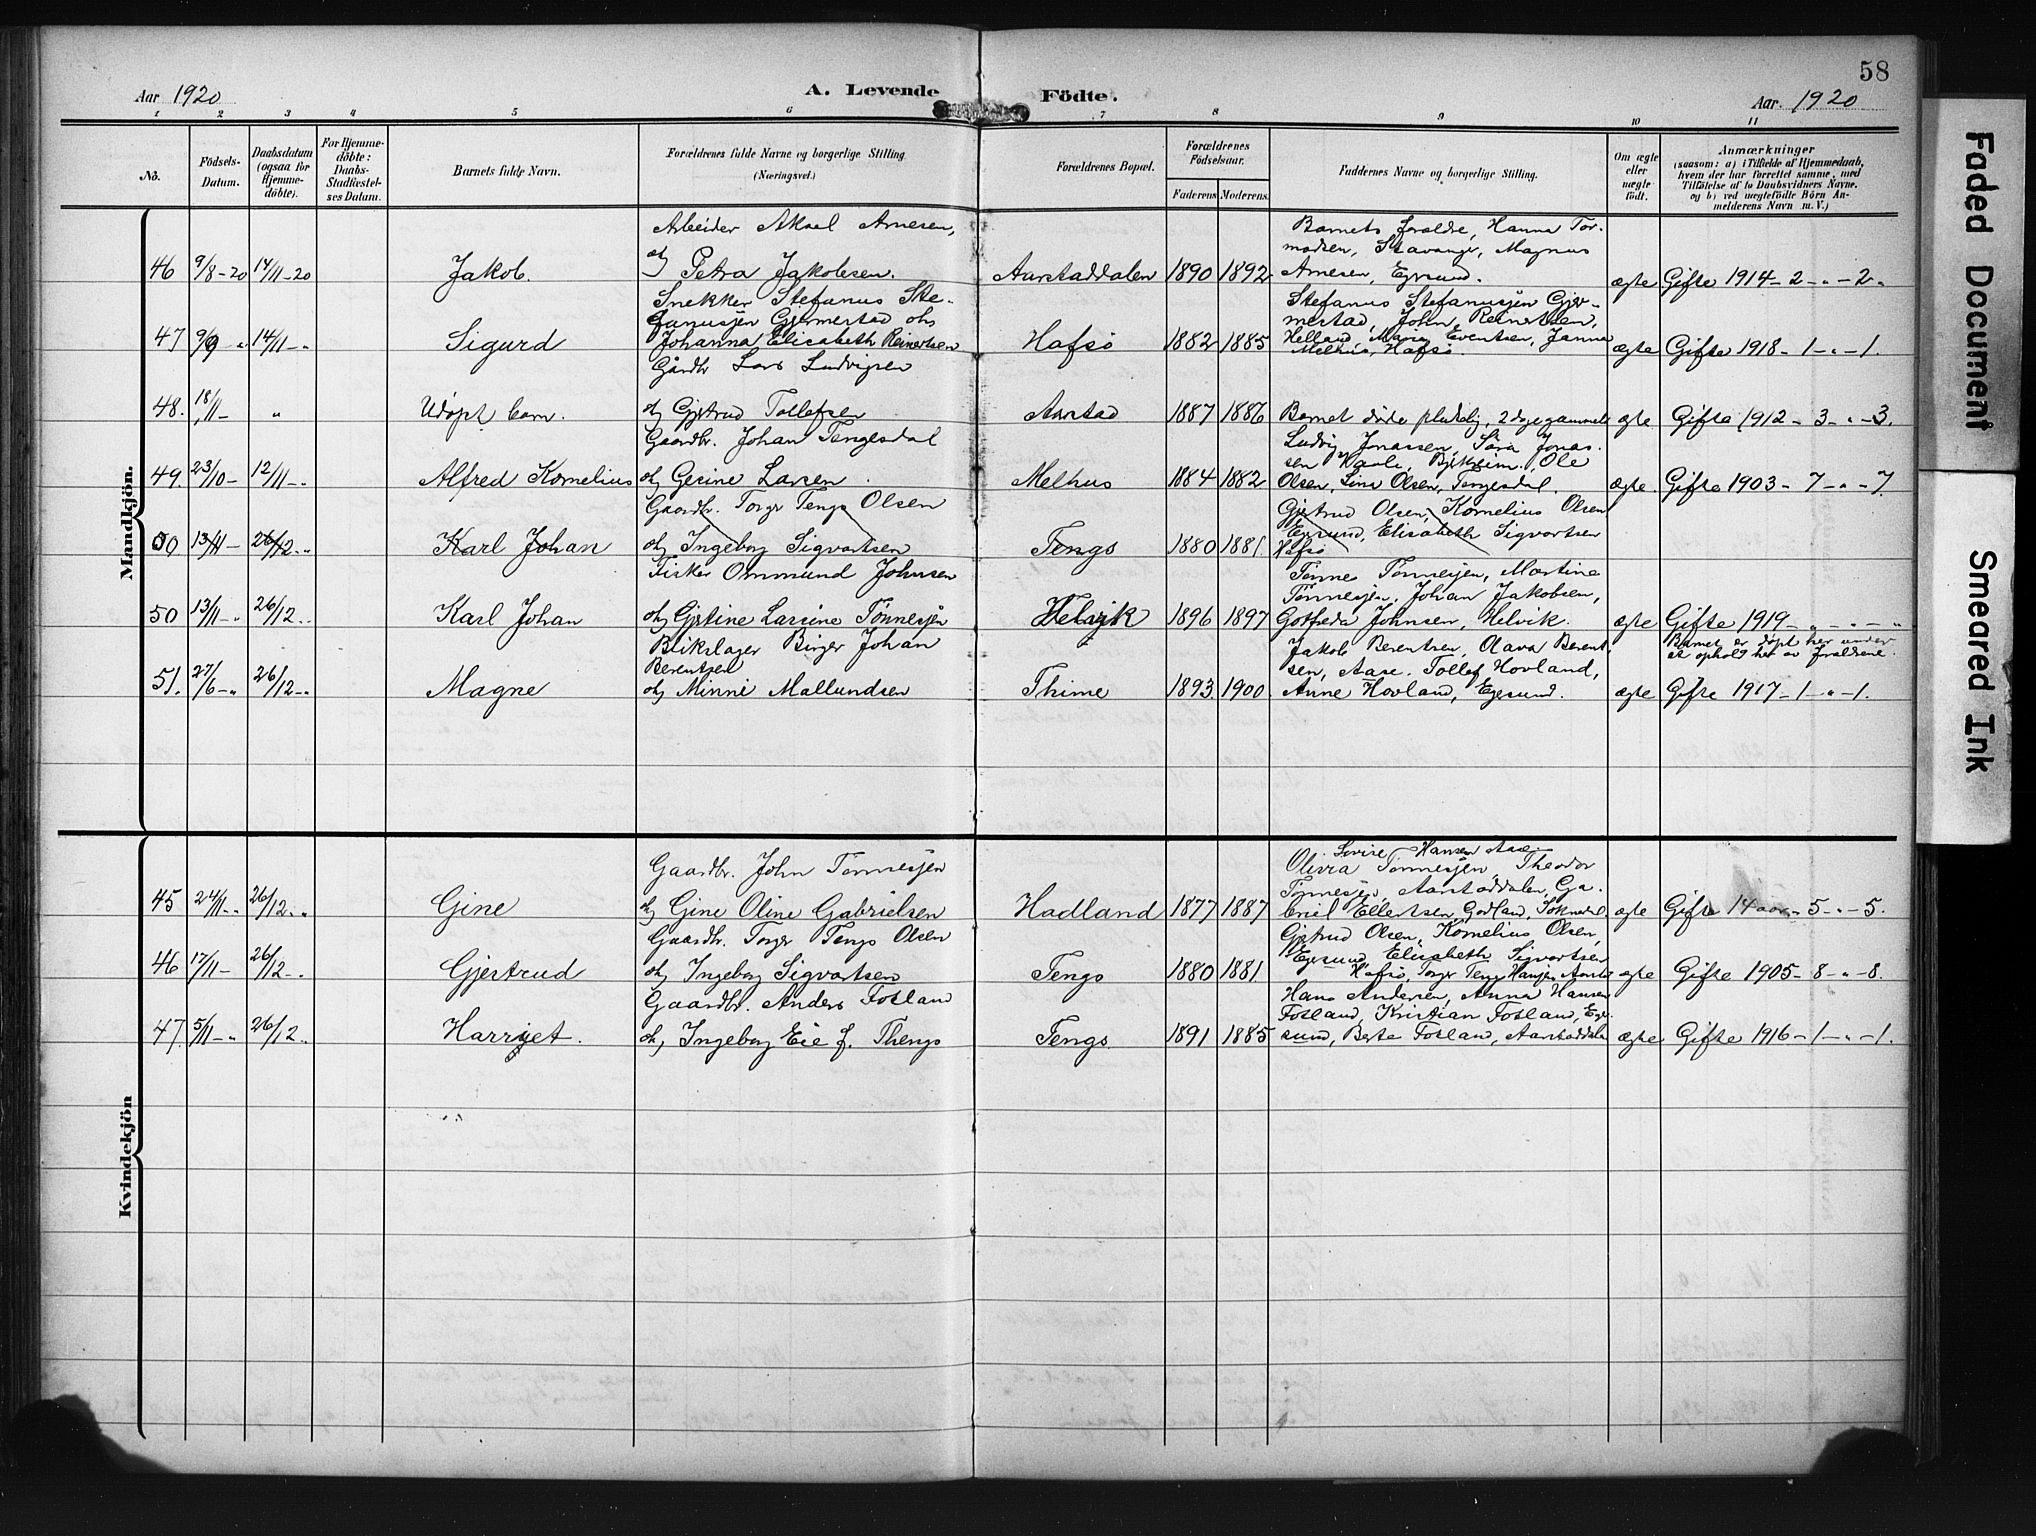 58
Aar 1920
A. Levende Födte.
Aar. 1920
1 2 3 4 5 6 7 8 9 10 11
No.
Födsels-
Datum.
Daabsdatum
(ogsaa for
Hjemme-
döbte).
For Hjemme-
döbte:
Daabs-
Stadfæstel-
ses Datum.
Barnets fulde Navn.
Forældrenes fulde Navne og borgerlige Stilling
(Næringsvei.)
Forældrenes Bopæl.
Forældrenes
Födselsaar.
Faderens Moderens
Faddernes Navne og borgerlige Stilling.
Om ægte
eller
uægte
födt.
Anmærkninger
(saasom: a) i Tilfælde af Hjemmedaab,
hvem der har forrettet samme, med
Tilföielse af to Daabsvidners Navne,
og b) ved uægtefödte Börn An-
melderens Navn m. V.)
Mandkjön.
Arbeider Aksel Arnesen,
Barnets foreldre, Hanna Tor-
modsen, Stavanger, Magnus
46 9/8-20 14/11-20 Jakob. og Petra Jakobsen. Aarstaddalen 1890 1892 Arnesen, Egersund. ægte Gifte 1914-2-"-2.
Snekker Stefanus Ste-
fanusjen Gjermestad ohs
Stefanus Stefanusjen Gjer-
mestad, John Reinertsen,
47 9/9 " 14/11-" Sigurd Johanna Elisabeth Reinertsen Hafsö 1882 1885 Helland, Maria Eventsen, Janna
Melhus, Hafsö. ægte Gifte 1918-1-"-1.
Gårdbr Lars Ludvigsen
48. 18/11- " Udøpt barn. og Gjertrud Tollefsen Aarstad 1887 1886 Barnet døde pludselig, 2 dage gammelt ægte Gifte 1912-3-"-3.
Gaardbr. Johan Tengesdal
Ludvig Jonassen, Sara Jonas-
sen, Bjerkreim. Ole
49. 23/10- 12/11-" Alfred Kornelius og Gesine Larsen Melhus 1884 1882 Olsen, Lina Olsen, Tengesdal. ægte. Gifte 1903-7-"-7.
Gaardbr. Torger Tengs Olsen
Gjertrud Olsen, Kornelius Olsen
Egersund, Elisabeth Sigvartsen
50 13/11- 26/12-" Karl Johan og Ingeborg Sigvartsen Tengs 1880 1881 Hafsö
Fisker Ommund Johnsen
Tønnes Tønnesjen, Martine
Tønnesjen, Johan Jakobsen,
50 13/11-" 26/12-" Karl Johan og Gjertine Larsine Tønnesjen Helvik 1896 1897 Gotfreda Johnsen, Helvik. ægte Gifte 1919-"-"-"
Blikslager Birger Johan
Berentsen
Jakob Berentsen, Olava Berent-
sen, Aase. Tollef Hovland,
Barnet er døpt her under
et ophold her av foreldrene.
51. 27/6-" 26/12-" Magne og Minni Mallundsen Thime 1893 1900 Anne Hovland, Egersund. ægte Gifte 1917-1-"-1.
Kvindekjön
Gaardbr. John Tønnesjen
Lovise Hansen Aase.
Olivia Tønnesjen, Theodor
Tønnesjen, Aarstaddalen, Ga-
45 24/11-" 26/12-" Gine og Gine Oline Gabrielsen Hadland 1877 1887 briel Eilertsen, Godland, Soknedal. ægte Gifte 14 aar-5-"-5.
Gaardbr. Torger Tengs Olsen
Gjertrud Olsen, Kornelius Olsen,
Egersund, Elisabeth Sigvartsen
46 17/11- 26/12-" Gjertrud og Ingeborg Sigvartsen Tengs 1880 1881 Hafsö, Torger Tengs Hansen, Aarsta ægte Gifte 1905-8-"-8.
Gaardbr. Anders Fotland
Hans Andersen, Anna Hansen
Fotland, Kristian Fotland, Eger-
47. 5/11-" 26/12-" Harrjet. og Ingeborg Eie f. Thengs Tengs 1891 1885 sund, Berte Fotland, Aarstaddalen ægte Gifte 1916-1-"-1.
Faded Document
Smeared Ink